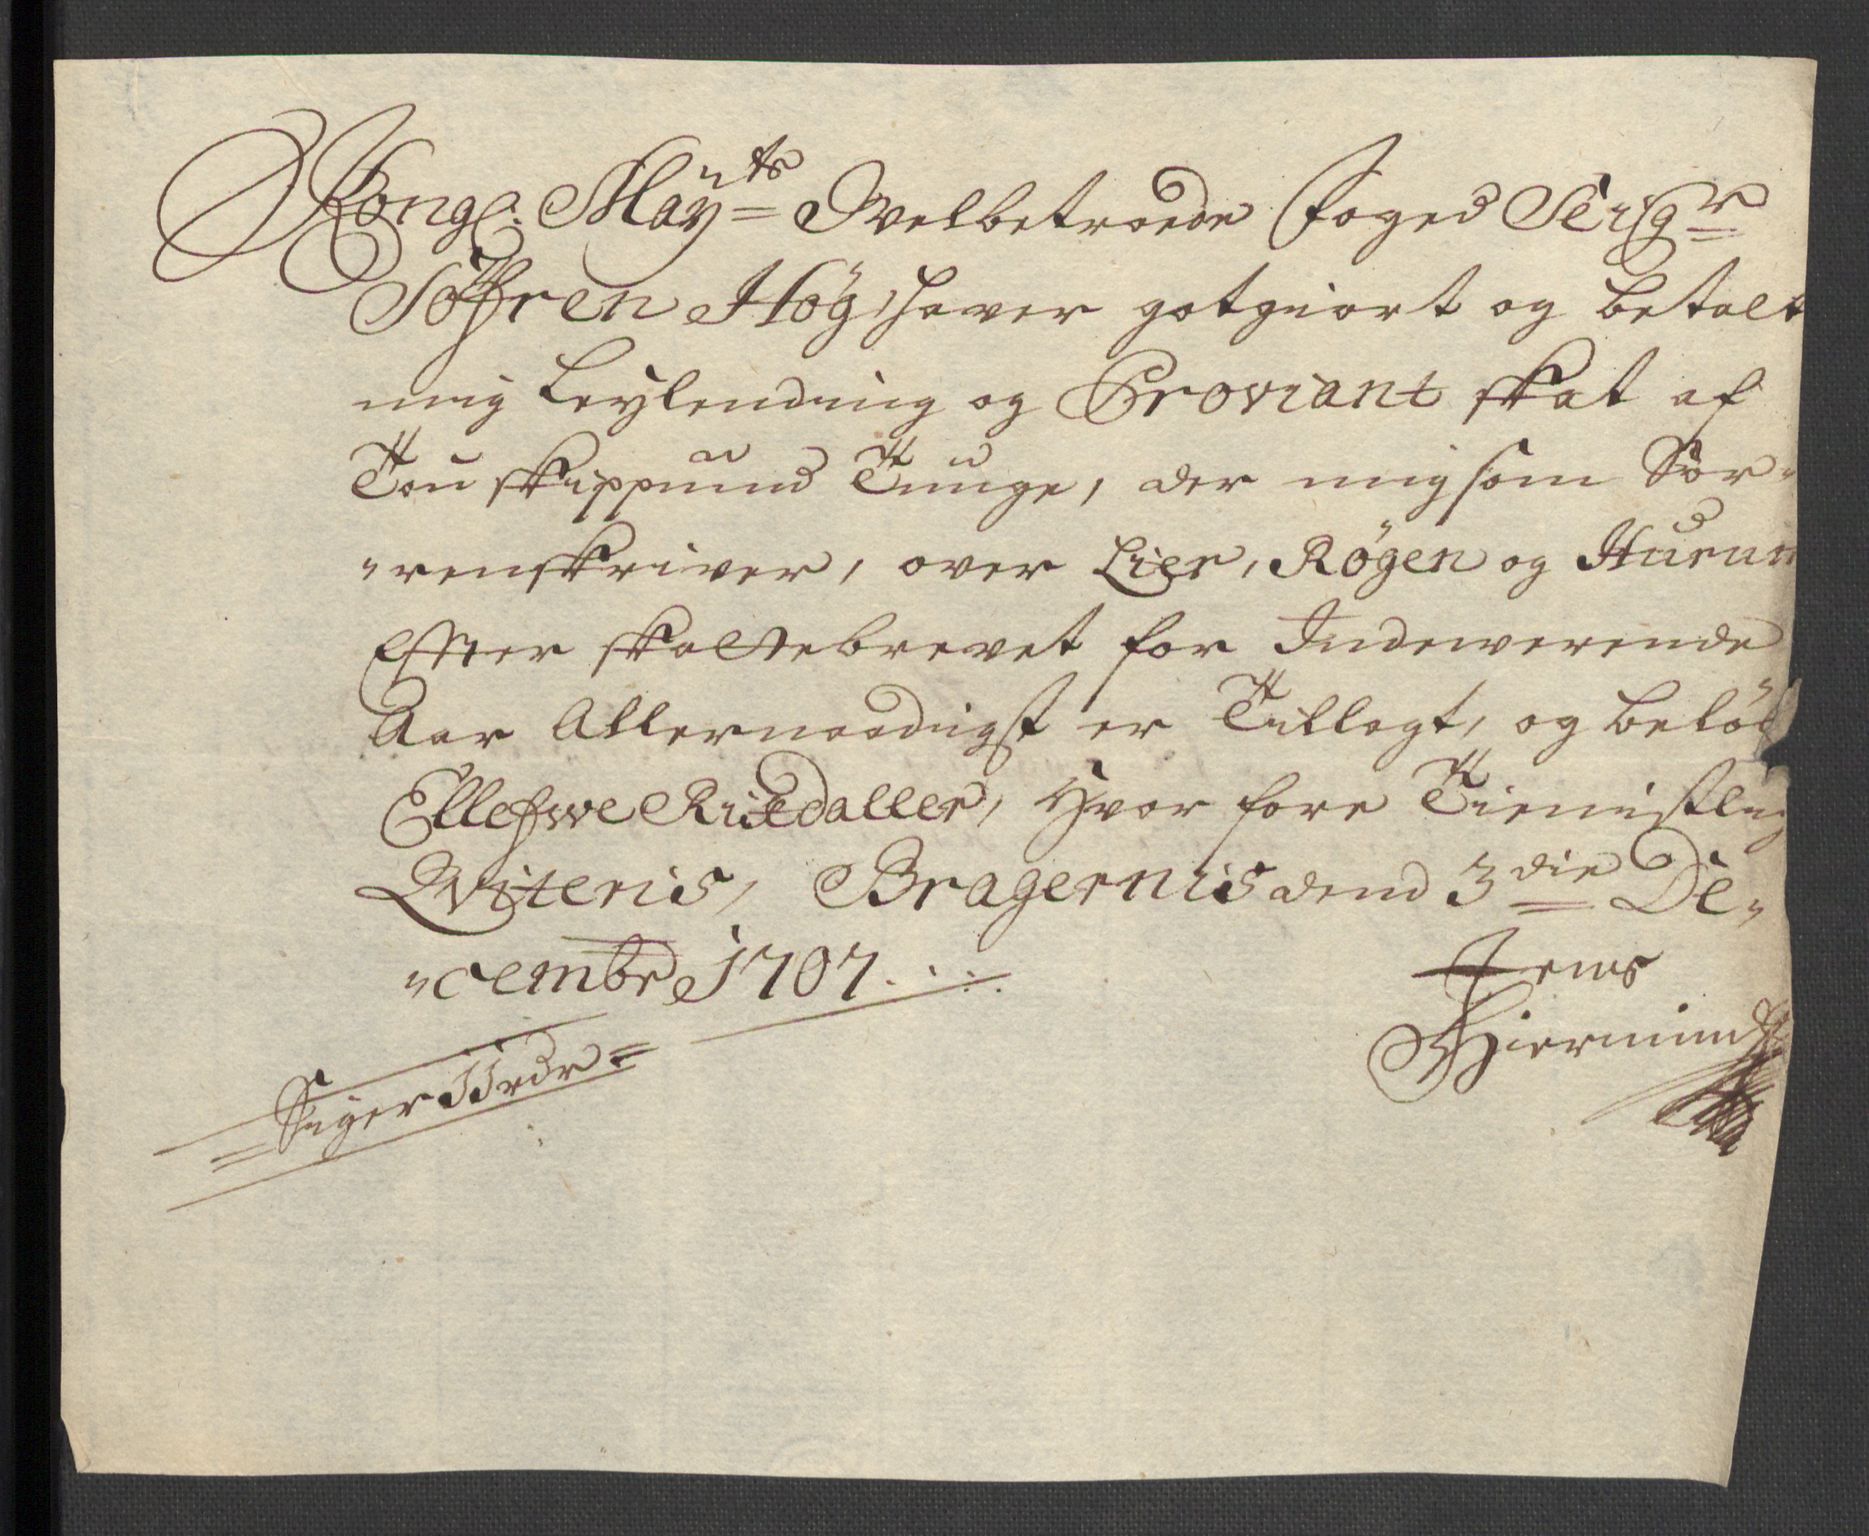 Kongl: Maÿts Welbetroede Foged Seigr
Söfren Hög, haver gotgiort og betalt
mig Leylending og Proviant skat af
Tou skippund Tunge, der mig som Sor-
-renskriver, over Lier, Rögen og Hurum
Efter skattebrevet for Indeværende
Aar Allernaadigst er Tillagt, og belöb
Ellefwe Rixdaller, Hvor fore Tienistlig
Qviteris, Bragernis dend 3die De-
-cembr 1707.
Jens
Hiermind
Siger 11 rdr